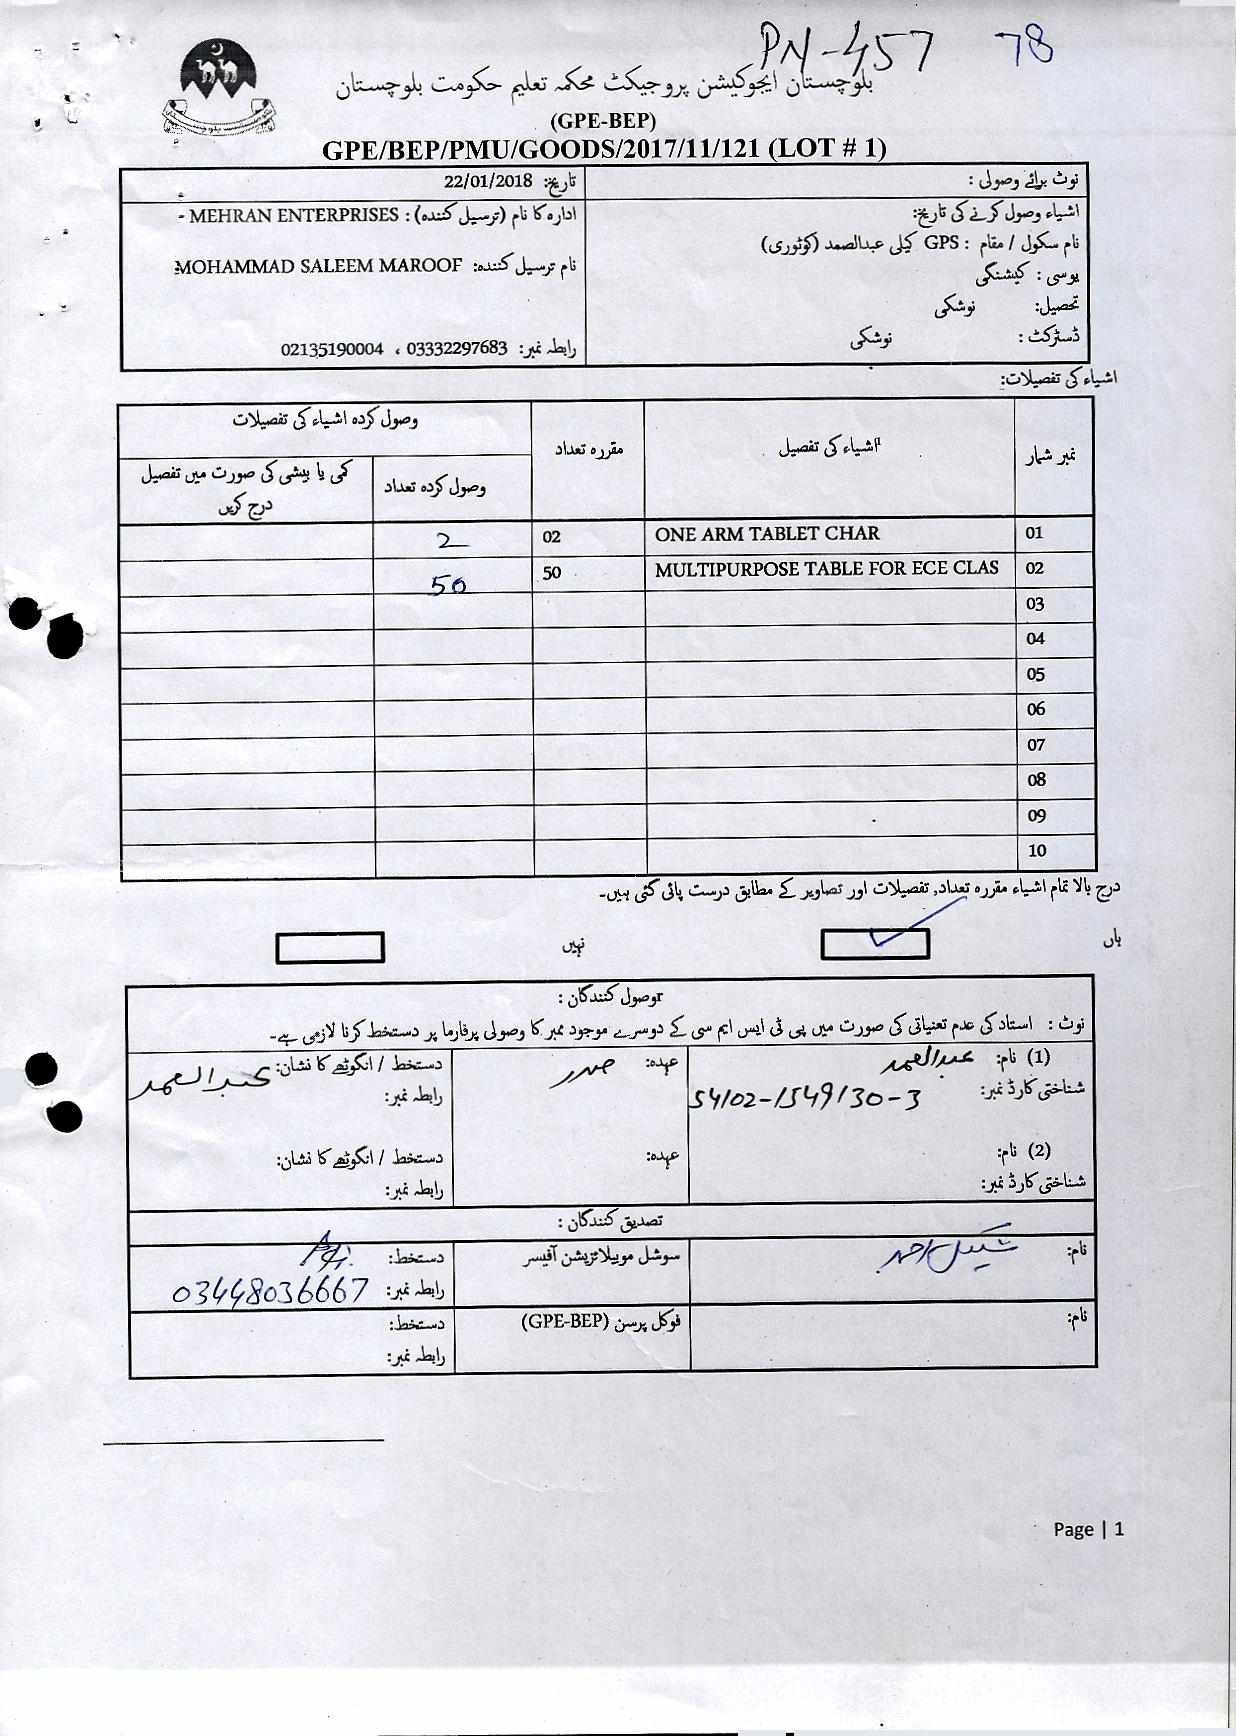 PN-457 78
بلوچستان ایجوکیشن پروجیکٹ محکمہ تعلیم حکومت بلوچستان
(GPE-BEP)
GPE/BEP/PMU/GOODS/2017/11/121 (LOT # 1)
نوٹ برائے وصولی :
اشیاء وصول کرنے کی تاریخ:
نام سکول / مقام : GPS کیلی عبدالصمد (کوٹوری)
یوسی : کیشنگی
تحصیل: نوشکی
ڈسٹرکٹ : نوشکی
تاریخ: 22/01/2018
ادارہ کا نام (ترسیل کنندہ) : MEHRAN ENTERPRISES -
نام ترسیل کنندہ: MOHAMMAD SALEEM MAROOF
رابطہ نمبر: 03332297683 ، 02135190004
اشیاء کی تفصیلات:
نمبر شمار اشیاء کی تفصیل مقررہ تعداد وصول کردہ اشیاء کی تفصیلات
وصول کردہ تعداد کمی یا بیشی کی صورت میں تفصیل درج کریں
01 ONE ARM TABLET CHAR 02 2
02 MULTIPURPOSE TABLE FOR ECE CLAS 50 50
03
04
05
06
07
08
09
10
درج بالا تمام اشیاء مقررہ تعداد, تفصیلات اور تصاویر کے مطابق درست پائی گئی ہیں۔
ہاں نہیں
وصول کنندگان :
نوٹ : استاد کی عدم تعنیاتی کی صورت میں پی ٹی ایس ایم سی کے دوسرے موجود ممبر کا وصولی پرفارما پر دستخط کرنا لازمی ہے۔
(1) نام: عبدالصمد عہدہ: صدر دستخط / انگوٹھے کا نشان: عبدالصمد
شناختی کارڈ نمبر: 54102-1549130-3 رابطہ نمبر:
(2) نام: عہدہ: دستخط / انگوٹھے کا نشان:
شناختی کارڈ نمبر: رابطہ نمبر:
تصدیق کنندگان :
نام: شکیل احمد سوشل موبیلائزیشن آفیسر دستخط:
رابطہ نمبر: 03448036667
نام: فوکل پرسن (GPE-BEP) دستخط:
رابطہ نمبر:
Page | 1